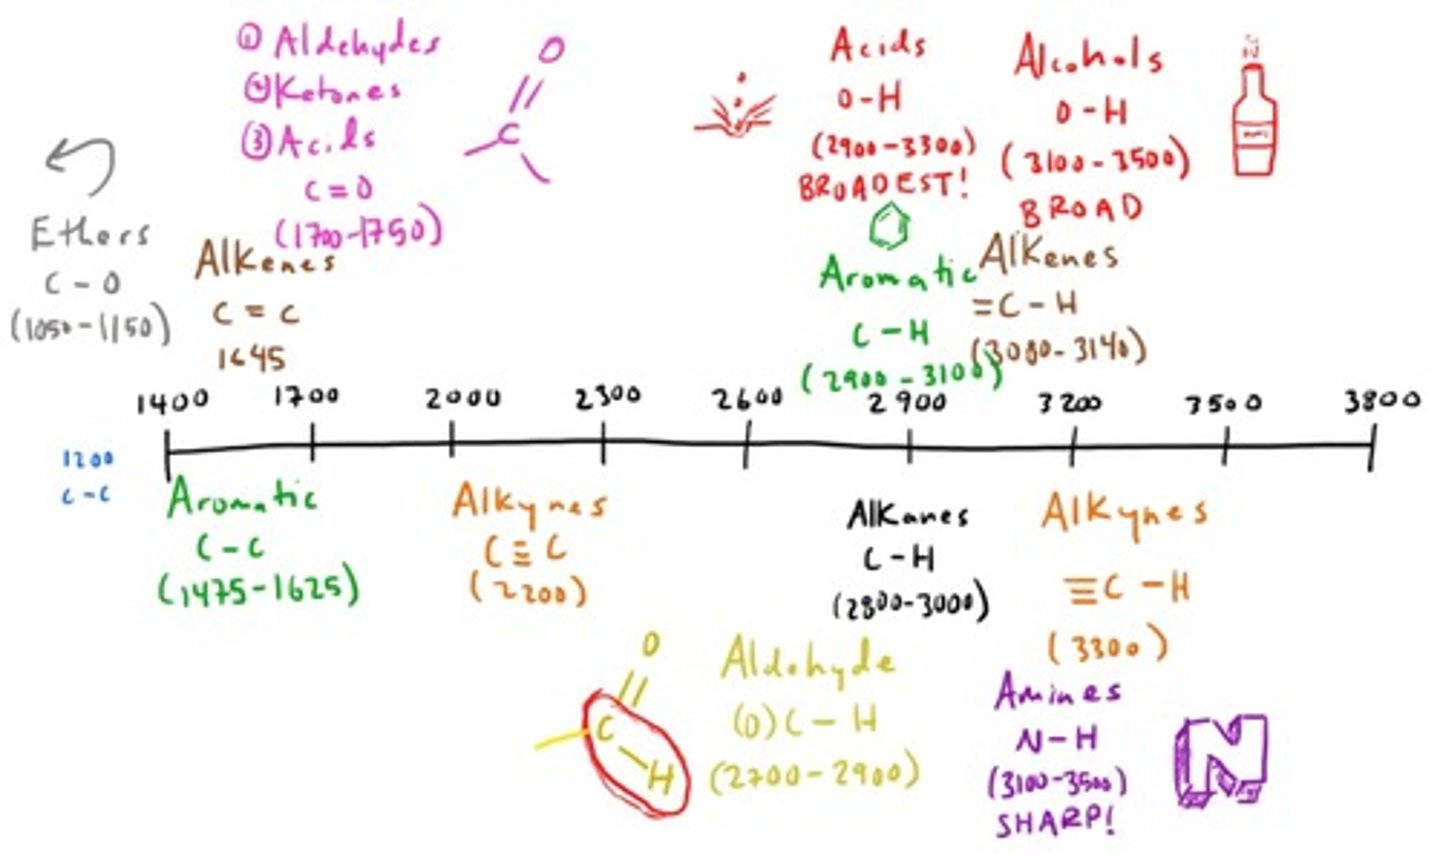 ① Aldehydes
② Ketones
③ Acids
C=O
(1700-1750)
O
C
Acids
O-H
(2900-3300)
BROADEST!
Alcohols
O-H
(3100-3500)
BROAD
Ethers
C-O
(1050-1150)
Alkenes
C=C
1645
Aromatic
C-H
(2900-3100)
Alkenes
=C-H
(3080-3140)
1400 1700 2000 2300 2600 2900 3200 3500 3800
1200
C-C
Aromatic
C-C
(1475-1625)
Alkynes
C≡C
(2200)
Alkanes
C-H
(2800-3000)
Alkynes
≡C-H
(3300)
O
C
H
Aldehyde
(O)C-H
(2700-2900)
Amines
N-H
(3100-3500)
SHARP!
N